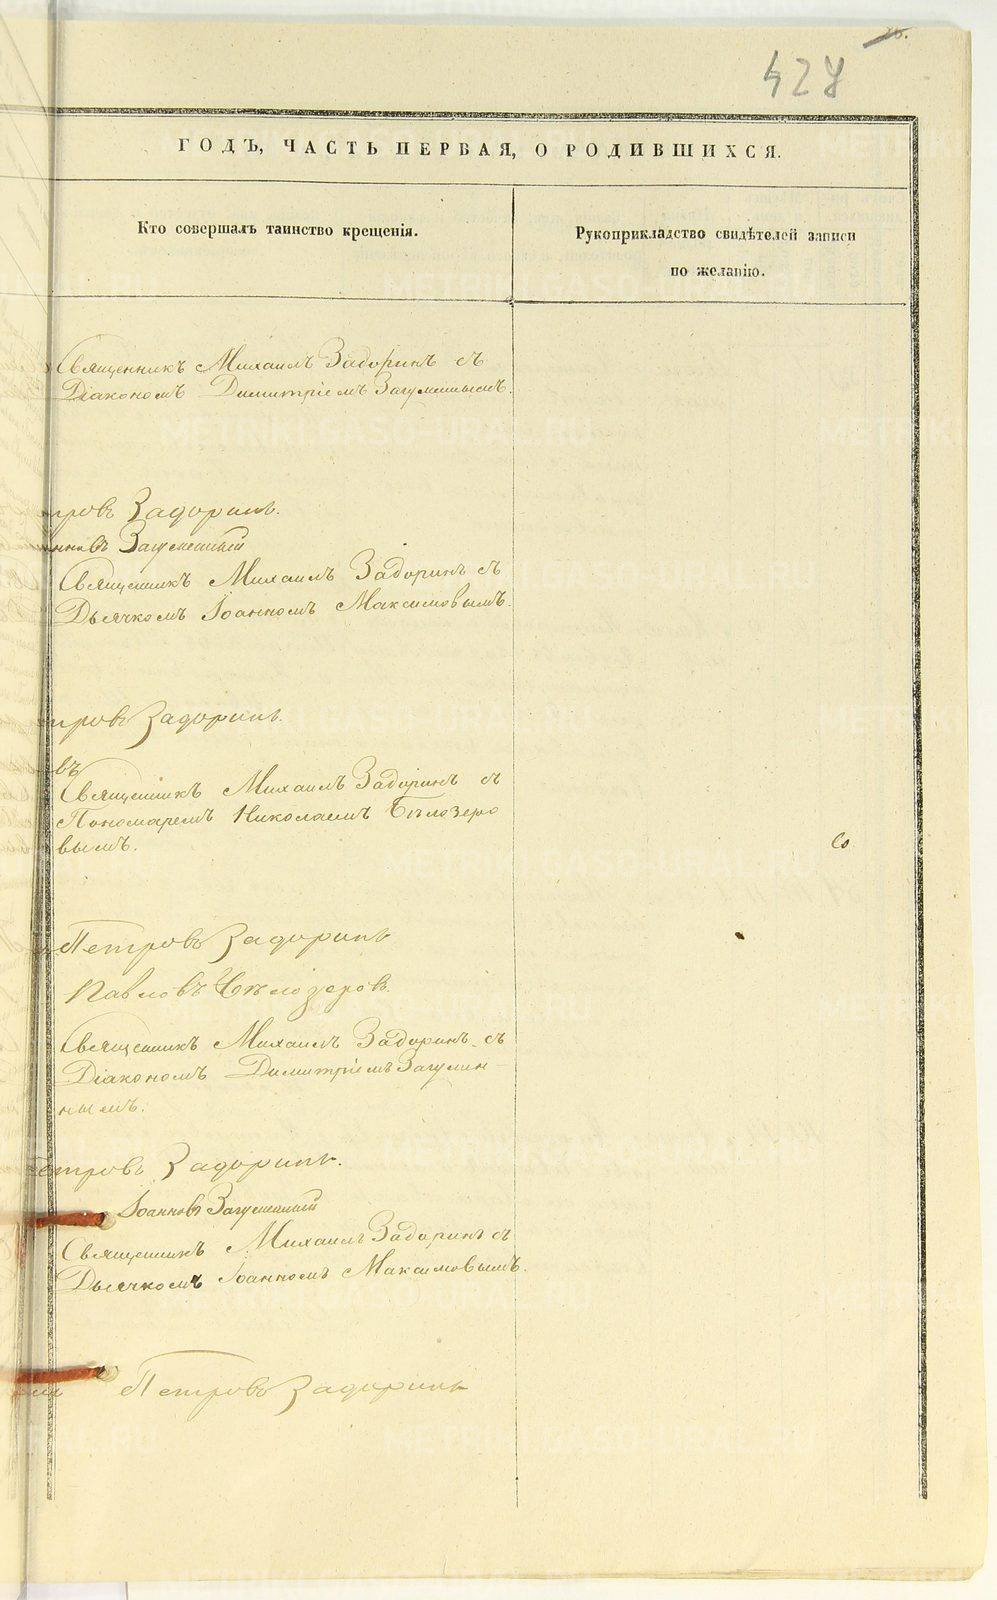 427
ГОДЪ, ЧАСТЬ ПЕРВАЯ, О РОДИВШИХСЯ.
Кто совершалъ таинство крещенія.
Рукоприкладство свидѣтелей записи
по желанію.
Священникъ Михаилъ Задоринъ съ
Діакономъ Димитріемъ Загуменнымъ.
тровъ Задоринъ.
нновъ Загуменный
Священникъ Михаилъ Задоринъ съ
Дьячкомъ Іоанномъ Максимовымъ.
тровъ Задоринъ.
въ
Священникъ Михаилъ Задоринъ съ
Пономаремъ Николаемъ Бѣлозеро
вымъ.
Петровъ Задоринъ
Павловъ Бѣлозеровъ.
Священникъ Михаилъ Задоринъ съ
Діакономъ Димитріемъ Загумен-
нымъ.
етровъ Задоринъ.
Іоанновъ Загуменный
Священникъ Михаилъ Задоринъ съ
Дьячкомъ Іоанномъ Максимовымъ.
Петровъ Задоринъ
METRIKI.GASO-URAL.RU